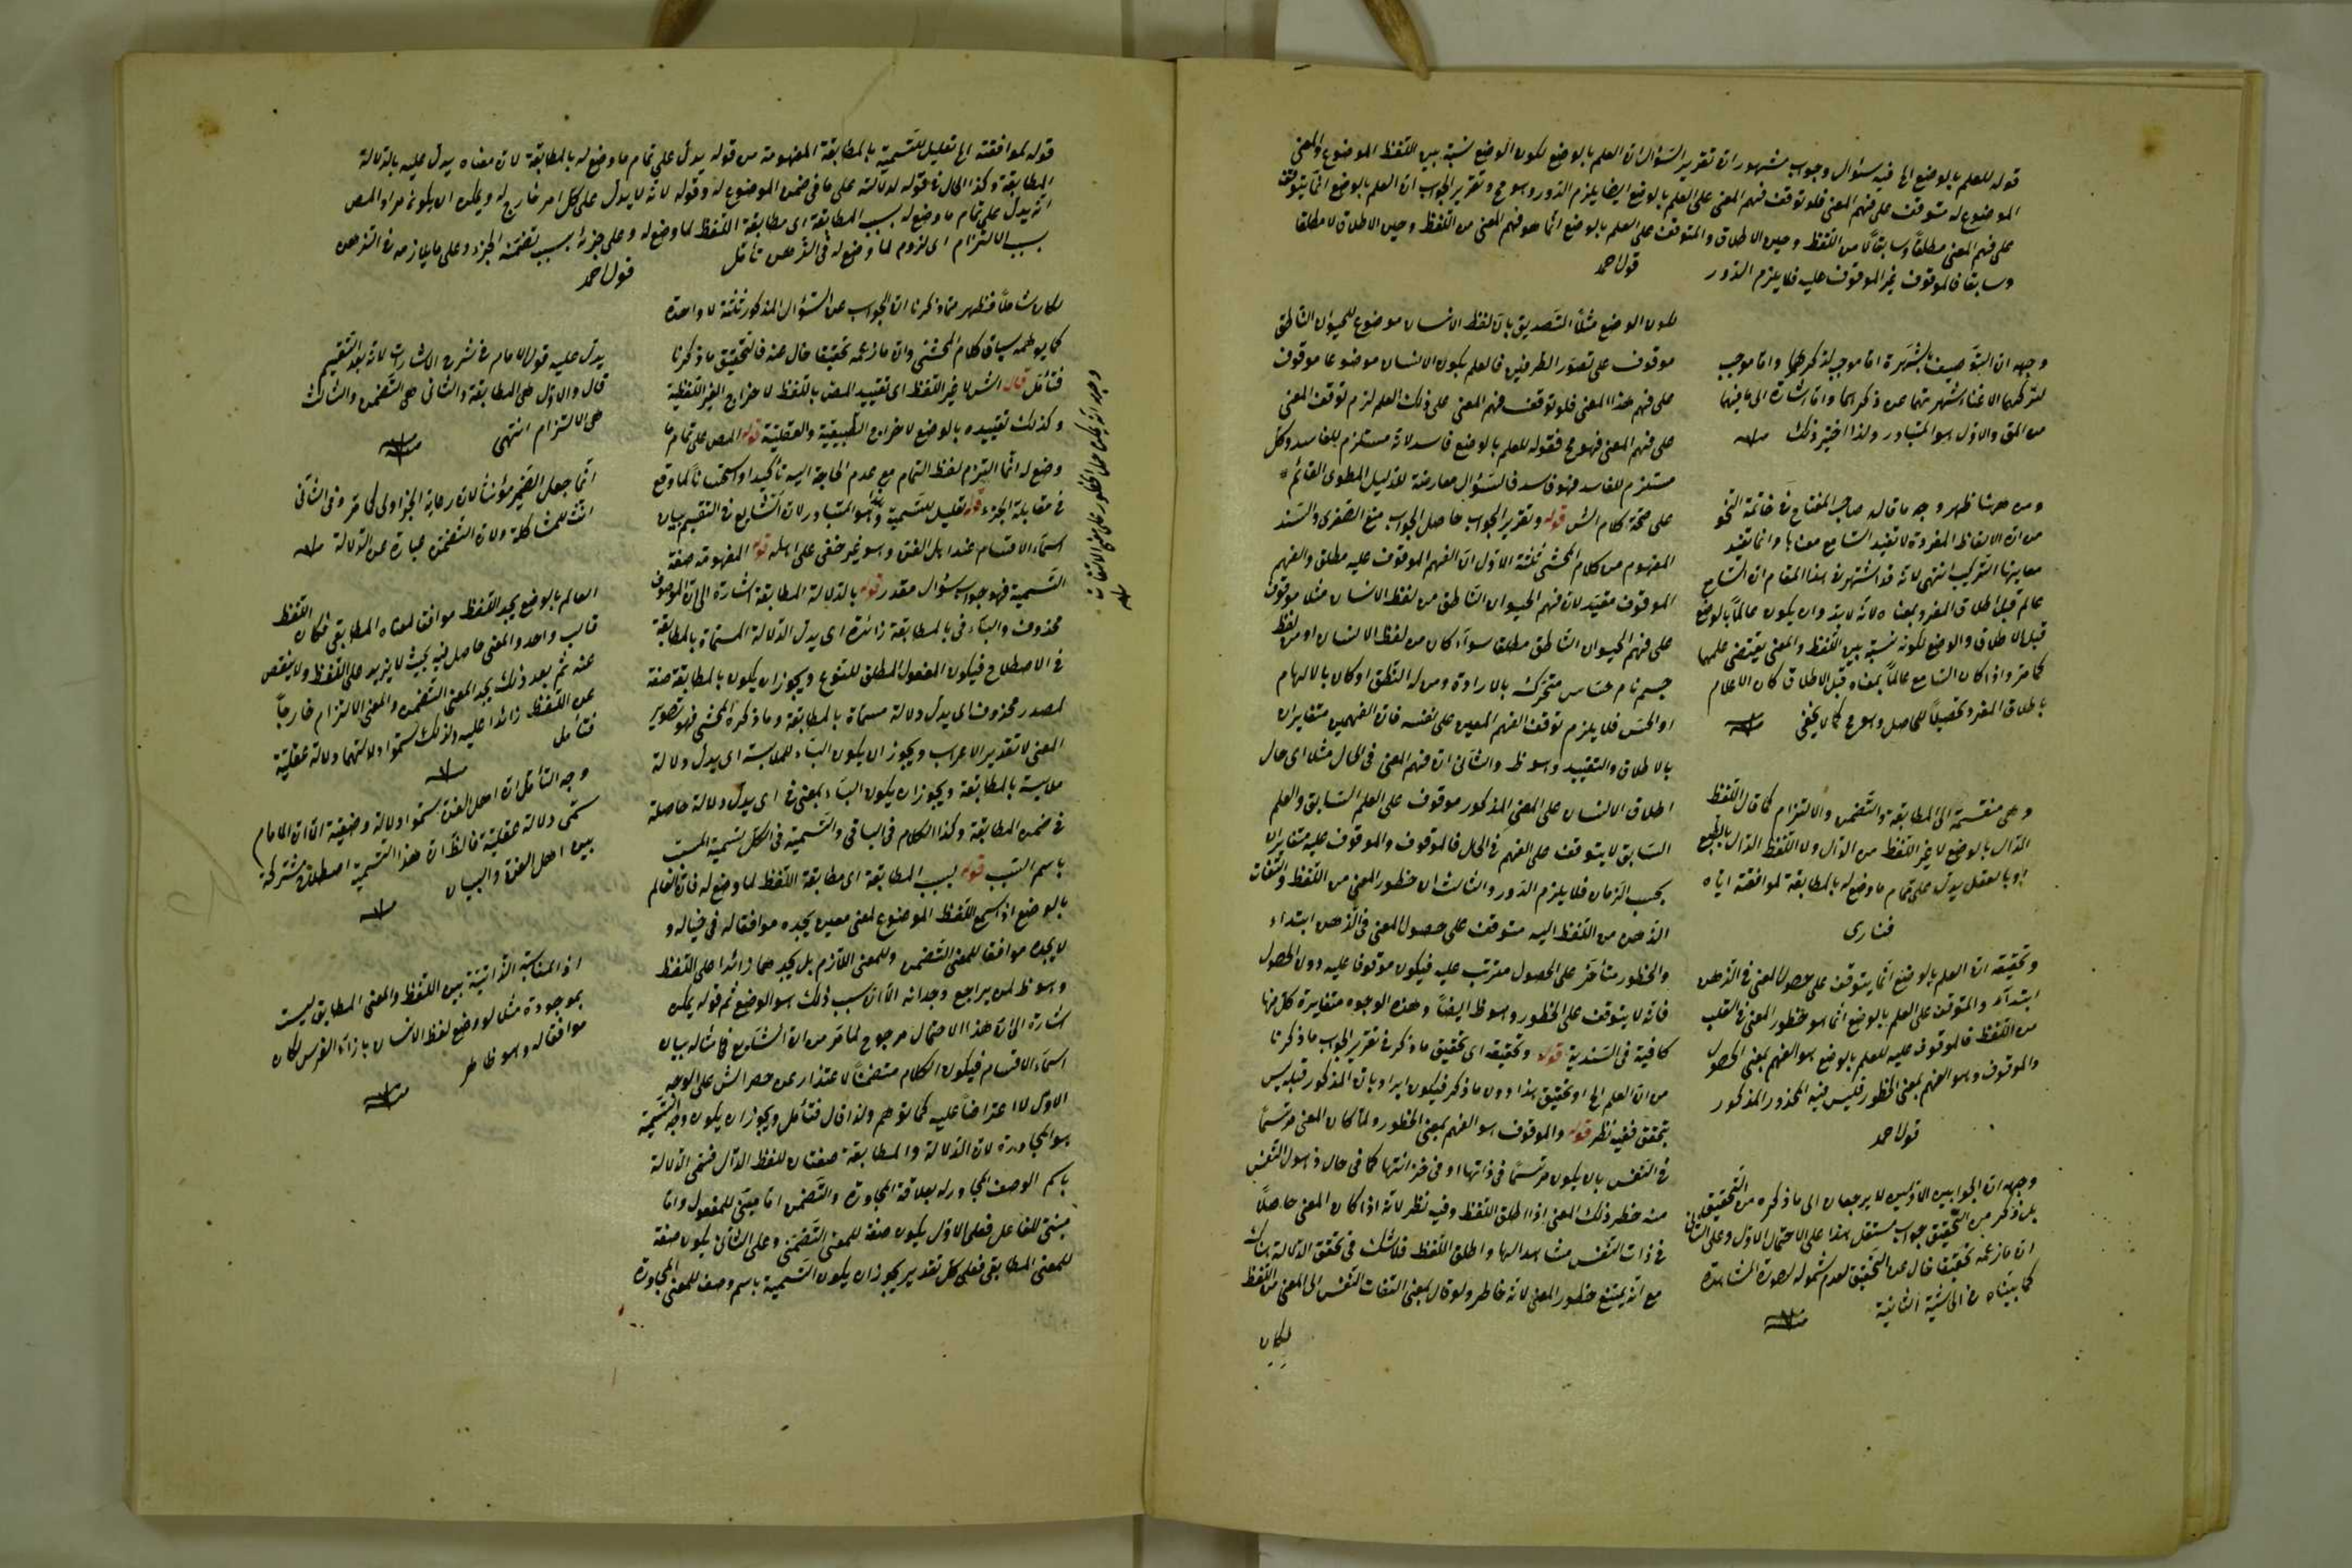 قوله للعلم بالوضع الخ فيه سؤال وجواب مشهوران تقرير السؤال ان العلم بالوضع لكون الوضع نسبة بين اللفظ الموضوع والمعنى
الموضوع له متوقف على فهم المعنى فلو توقف فهم المعنى على العلم بالوضع ايضا يلزم الدور وهو مح وتقرير الجواب ان العلم بالوضع انما يتوقف
على فهم المعنى مطلقا وسابقا لا من اللفظ وحين الاطلاق والمتوقف على العلم بالوضع انما هو فهم المعنى من اللفظ وحين الاطلاق لا مطلقا
وسابقا فالموقوف غير الموقوف عليه فلا يلزم الدور قول احمد
لكون الوضع مثلا التصديق بان لفظ الانسان موضوع للحيوان الناطق
موقوف على تصور الطرفين فالعلم بكون الانسان موضوعا موقوف
على فهم هذا المعنى فلو توقف فهم المعنى على ذلك العلم لزم توقف المعنى
على فهم المعنى فهو مح فقوله للعلم بالوضع فاسد لانه مستلزم للفاسد وكل
مستلزم للفاسد فهو فاسد فالسؤال معارضة للدليل المطوى القائم
على صحة كلام الش قوله وتقرير الجواب حاصل الجواب منع الصغرى والسند
المفهوم من كلام المحشى ثلثة الاول ان الفهم الموقوف عليه مطلق والفهم
الموقوف مقيد لان فهم الحيوان الناطق من لفظ الانسان مثلا موقوف
على فهم الحيوان الناطق مطلقا سواء كان من لفظ الانسان او من لفظ
جسم نام حساس متحرك بالارادة ومن له النطق او كان بالالهام
او الحس فلا يلزم توقف الفهم المعين على نفسه فان الفهمين متغايران
بالاطلاق والتقييد وهو ظ والثانى ان فهم المعنى فى الحال مثلا اى حال
اطلاق الانسان على المعنى المذكور موقوف على العلم السابق والعلم
السابق لا يتوقف على الفهم فى الحال فالموقوف والموقوف عليه متغايران
بحسب الزمان فلا يلزم الدور والثالث ان خطور المعنى من اللفظ والتفات
الذهن من اللفظ اليه متوقف على حصول المعنى فى الذهن ابتداء
والخطور متأخر على الحصول مترتب عليه فيكون موقوفا عليه دون الحصول
فانه لا يتوقف على الخطور وهو ظ ايضا وهذه الوجوه متغايرة كل منها
كافية فى السندية قوله وتحقيقه اى تحقيق ما ذكر فى تقرير الجواب ما ذكرنا
من ان العلم الخ او تحقيق هذا دون ما ذكر فيكون ايرادا بان المذكور قبله ليس
بتحقق ففيه نظر قوله والموقوف هو الفهم بمعنى الخطور ولما كان المعنى مرتسما
فى النفس بان يكون مرتسما فى ذاتها او فى خزانتها كما فى حال ذهول النفس
منه خطر ذلك المعنى اذا اطلق اللفظ وفيه نظر لانه اذا كان المعنى حاصلا
فى ذات النفس مشاهدا لها واطلق اللفظ فلا شك فى تحقق الدلالة هناك
مع انه يمتنع خطور المعنى لانه خاطر ولو قال بمعنى التفات النفس الى المعنى من اللفظ
لكان
وجهه ان التوصيف بالشهرة اما موجب لذكرهما واما موجب
لتركهما الاغناء شهرتهما عن ذكرهما واما اشارة الى ما فيهما
من المق والاول هو المتبادر ولذا اختير ذلك منه
ومن ههنا ظهر وجه ما قاله صاحب المفتاح فى خاتمة النحو
من ان الالفاظ المفردة لا تفيد السامع معناها وانما تفيد
معانيها التركيب انتهى لانه قد اشتهر فى هذا المقام ان السامع
عالم قبل اطلاق المفرد بمعناه لانه لا بد وان يكون عالما بالوضع
قبل الاطلاق والوضع لكونه نسبة بين اللفظ والمعنى يقتضى علمهما
كما مر واذا كان السامع عالما بمعناه قبل الاطلاق كان الاعلام
باطلاق المفرد تحصيلا للحاصل وهو مح كما لا يخفى منه
وهى منقسمة الى المطابقة والتضمن والالتزام كما قال اللفظ
الدال بالوضع لا غير اللفظ من الدال ولا اللفظ الدال بالطبع
او بالعقل يدل على تمام ما وضع له بالمطابقة لموافقته اياه
فنارى
وتحقيقه ان العلم بالوضع انما يتوقف على حصول المعنى فى الذهن
ابتداء والمتوقف على العلم بالوضع انما هو خطور المعنى فى القلب
من اللفظ فالموقوف عليه للعلم بالوضع هو الفهم بمعنى الحصول
والموقوف وهو الفهم بمعنى الخطور فليس فيه المحذور المذكور
قول احمد
وجهه ان الجوابين الاولين لا يرجعان الى ما ذكره من التحقيق
بل ذكر من التحقيق جواب مستقل هذا على الاحتمال الاول وعلى الثانى
ان ما زعمه تحقيقا خال عن التحقيق لعدم شموله لصورة المشاهدة
كما بيناه فى الحاشية الثانية منه
قوله لموافقته الخ تعليل للتسمية بالمطابقة المفهومة من قوله يدل على تمام ما وضع له بالمطابقة لان معناه يدل عليه بالدلالة
المطابقة وكذا الحال فى قوله لدلالته على ما فى ضمن الموضوع له وقوله لانه لا يدل على كل امر خارج له ويمكن ان يكون مراد المص
انه يدل على تمام ما وضع له بسبب المطابقة اى مطابقة اللفظ لما وضع له وعلى جزئه بسبب تضمنه الجزء وعلى ما يلازمه فى الذهن
بسبب الالتزام اى لزوم لما وضع له فى الذهن تأمل قول احمد
لكان شاملا فظهر مما ذكرنا ان الجواب عن السؤال المذكور ثلثة لا واحدة
كما يوهمه سياق كلام المحشى وان ما زعمه تحقيقا خال عنه فالتحقيق ما ذكرنا
فتأمل قال الش لا غير اللفظ اى تقييد المص باللفظ لاخراج الغير اللفظية
وكذلك تقييده بالوضع لاخراج الطبيعية والعقلية قوله المص على تمام ما
وضع له انما التزم لفظ التمام مع عدم الحاجة اليه تأكيدا واستحسانا لما وقع
فى مقابلة الجزء قوله تعليل للتسمية وهذا هو المتبادر لان الشايع فى التقسيم بيان
اسماء الاقسام عند اهل الفن وهو غير خفى على اهله قوله المفهومة صفة
التسمية فهو جواب سؤال مقدر قوله بالدلالة المطابقة اشارة الى ان الموصوف
محذوف والباء فى بالمطابقة زائدة اى يدل الدلالة المسماة بالمطابقة
فى الاصطلاح فيكون المفعول المطلق للنوع ويجوز ان يكون بالمطابقة صفة
لمصدر محذوف اى يدل دلالة مسماة بالمطابقة وما ذكره المحشى فهو تصوير
المعنى لا تقدير الاعراب ويجوز ان يكون الباء للملابسة اى يدل دلالة
ملابسة بالمطابقة ويجوز ان يكون الباء بمعنى فى اى يدل دلالة حاصلة
فى ضمن المطابقة وكذا الكلام فى الباقى والتسمية فى الكل تسمية المسبب
باسم السبب قوله بسبب المطابقة اى مطابقة اللفظ لما وضع له فان العالم
بالوضع اذا سمع اللفظ الموضوع لمعنى معين يجده موافقا له فى خياله و
لا يجده موافقا للمعنى التضمن وللمعنى اللازم بل يجدهما زائدا على اللفظ
وهو ظ لمن يراجع وجدانه الا ان سبب ذلك هو الوضع ثم قوله يمكن
اشارة الى ان هذا الاحتمال مرجوح لما مر من ان الشايع فى امثاله بيان
اسماء الاقسام فيكون الكلام متضمنا لاعتذار عن حصر الش على الوجه
الاول لا اعتراضا عليه كما توهم ولذا قال فتأمل ويجوز ان يكون وجه التسمية
هو المجاورة لان الدلالة والمطابقة صفتان للفظ الدال فسمى الدلالة
باسم الوصف المجاور له بعلاقة المجاورة والتضمن اما مبنى للمفعول واما
مبنى للفاعل فعلى الاول يكون صفة للمعنى التضمنى وعلى الثانى يكون صفة
للمعنى المطابقى فعلى كل تقدير يجوز ان يكون التسمية باسم وصف للمعنى المجاورة
يدل عليه قول الامام فى شرح الاشارات لانه بعد التقسيم
قال والاول هى المطابقة والثانى هى التضمن والثالث
هى الالتزام انتهى منه
انما جعل الضمير مؤنثا لان رعاية الخبر اولى كما تقر وفى الثانى
انث للمشاكلة ولان التضمن عبارة عن الدلالة منه
العالم بالوضع يجد اللفظ موافقا لمعناه المطابقى فكان اللفظ
قالب واحد والمعنى حاصل فيه بحيث لا يزيد على اللفظ ولا ينقص
عنه ثم بعد ذلك يجد المعنى التضمن والمعنى الالتزام خارجا
عن اللفظ زائدا عليه ولذلك سموا دلالتهما دلالة عقلية
فتأمل
منه
وجه التأمل ان اهل الفن سموا دلالة وضعية الا ان الامام
سمى دلالة عقلية فالظ ان هذا التسمية اصطلاح مشتركة
بين اهل الفن والبيان منه
اذ المناسبة الذاتية بين اللفظ والمعنى المطابقى ليست
بموجودة مثلا لو وضع لفظ الانسان بازاء الفرس لكان
موافقا له وهو ظاهر
منه